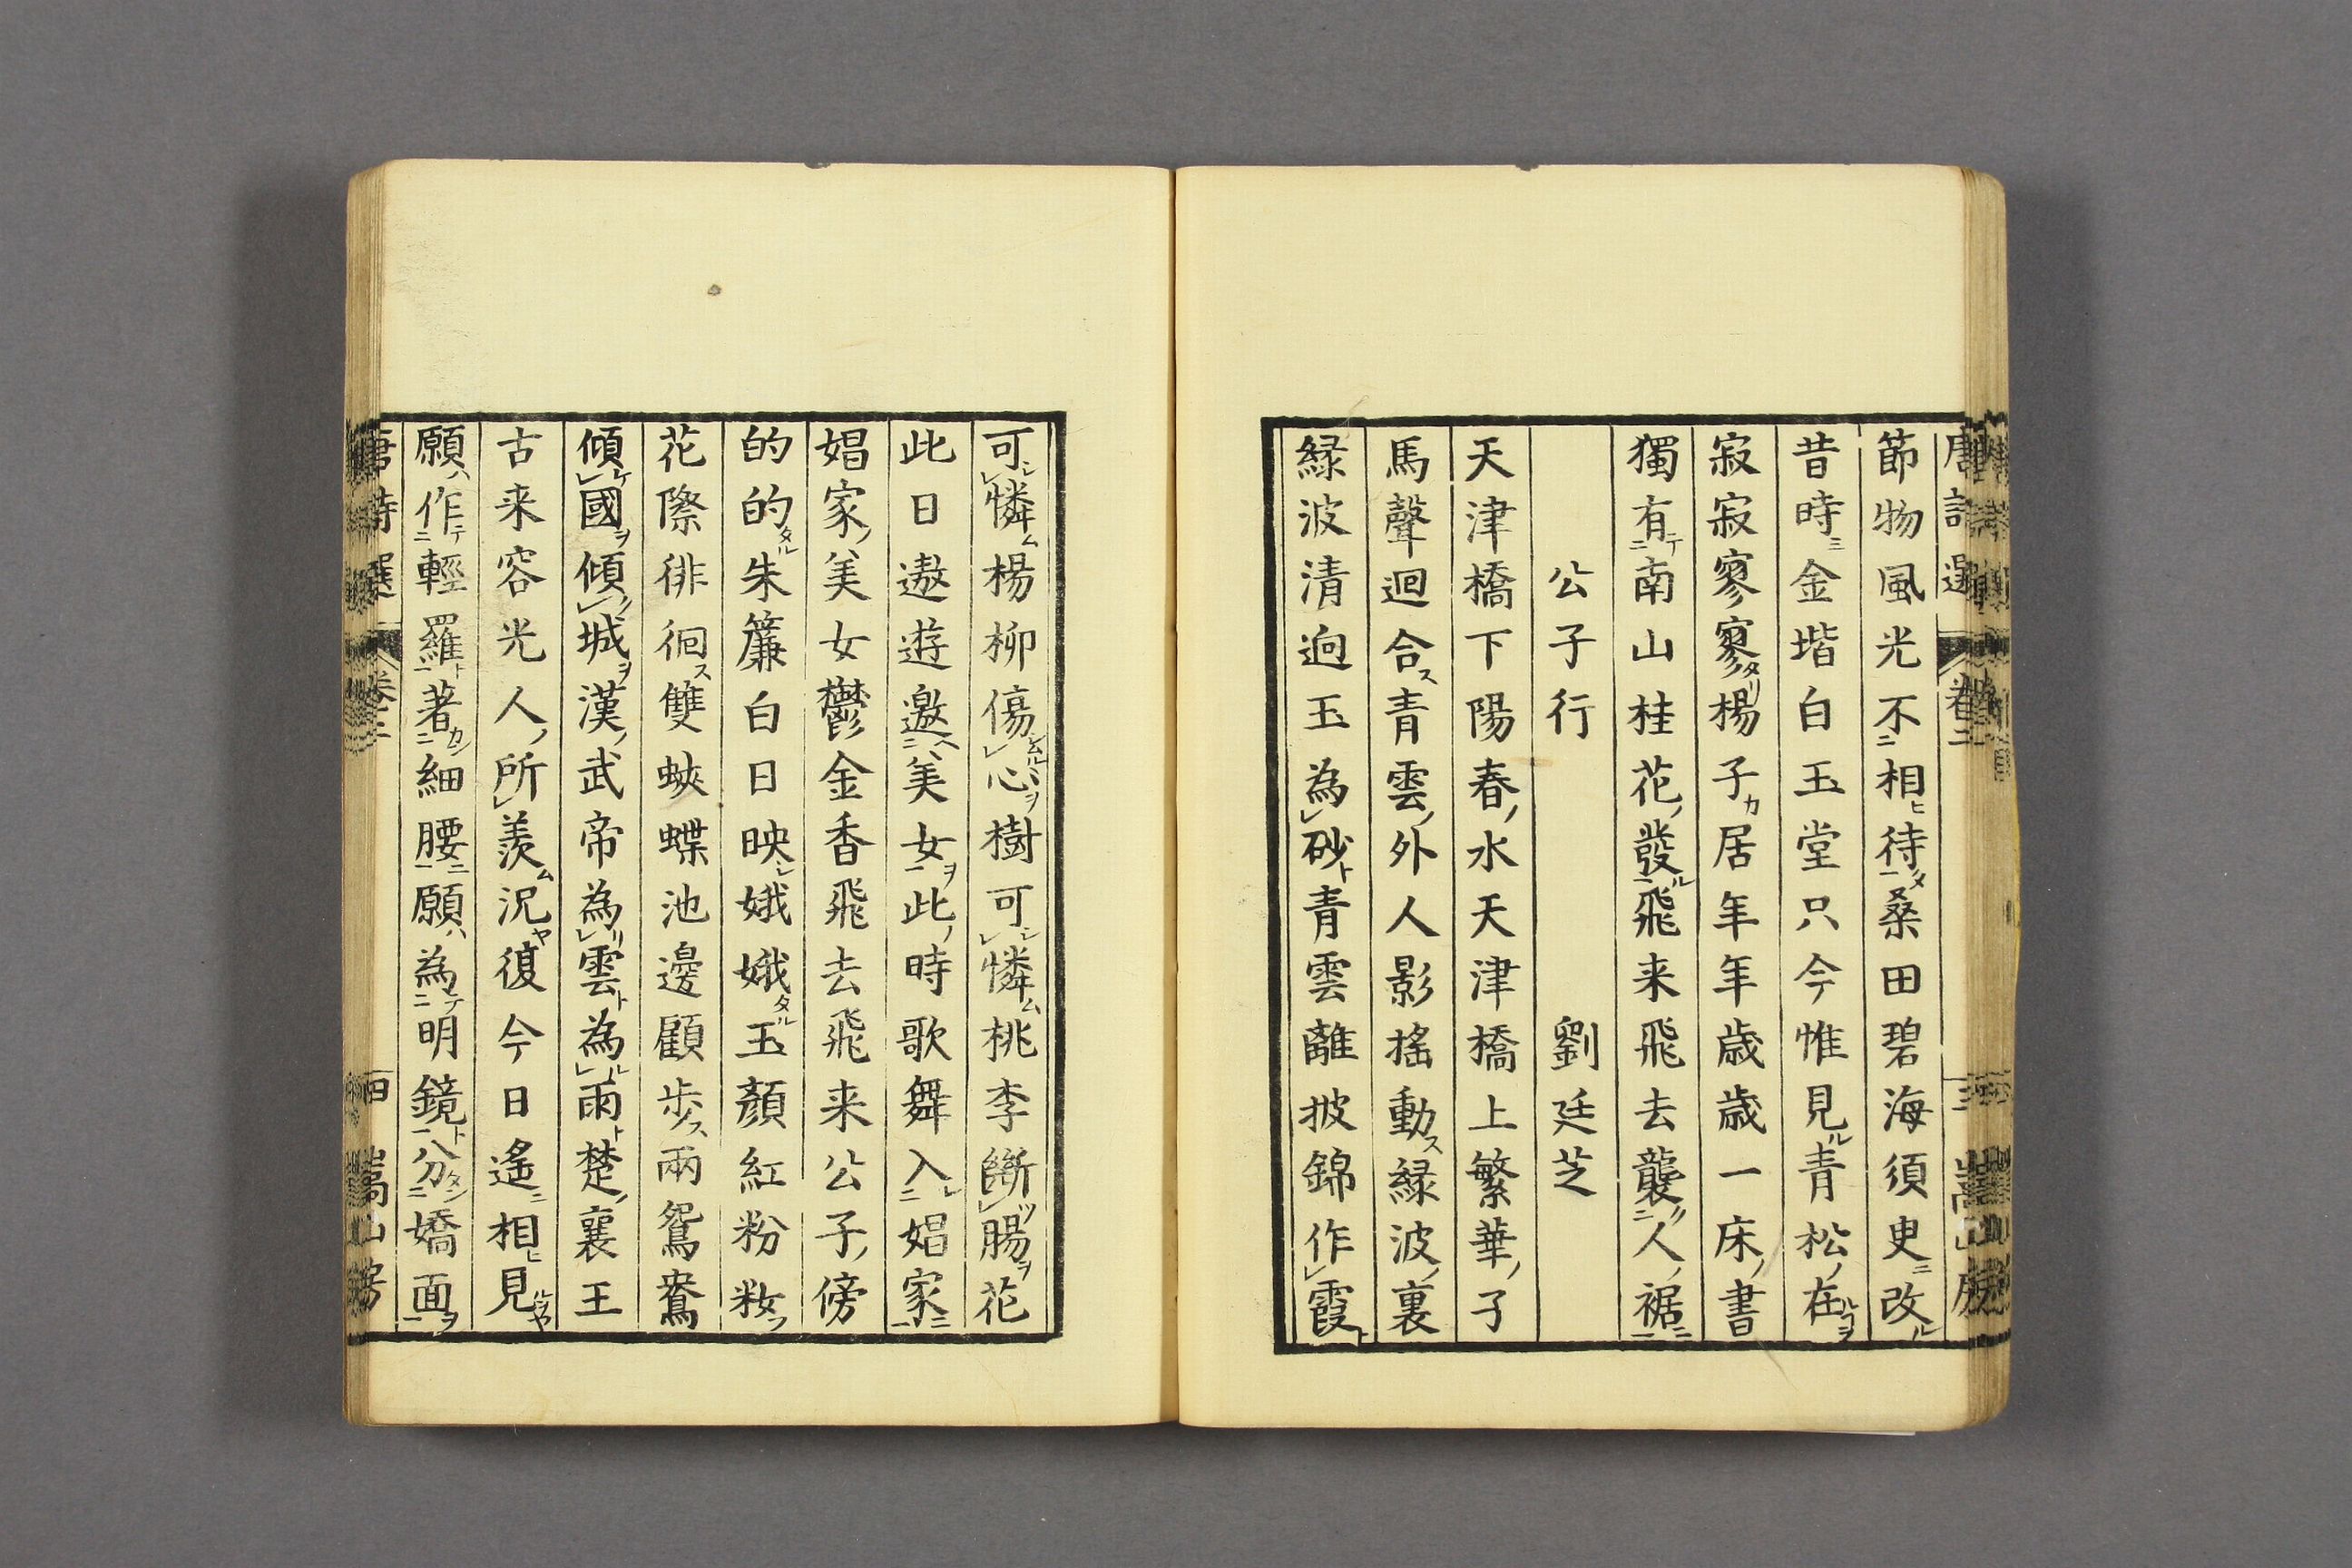 節物風光不相待桑田碧海須臾改
昔時金堦白玉堂只今惟見青松在
寂寂寥寥楊子居年年歳歳一床書
獨有南山桂花發飛来飛去襲人裾
公子行 劉廷芝
天津橋下陽春水天津橋上繁華子
馬聲迴合青雲外人影搖動緑波裏
緑波清迥玉為砂青雲離披錦作霞
可憐楊柳傷心樹可憐桃李斷腸花
此日遨遊邀美女此時歌舞入娼家
娼家美女鬱金香飛去飛来公子傍
的的朱簾白日映娥娥玉顏紅粉妝
花際徘徊雙蛺蝶池邊顧步兩鴛鴦
傾國傾城漢武帝為雲為雨楚襄王
古来容光人所羨況復今日遙相見
願作輕羅著細腰願為明鏡分嬌面